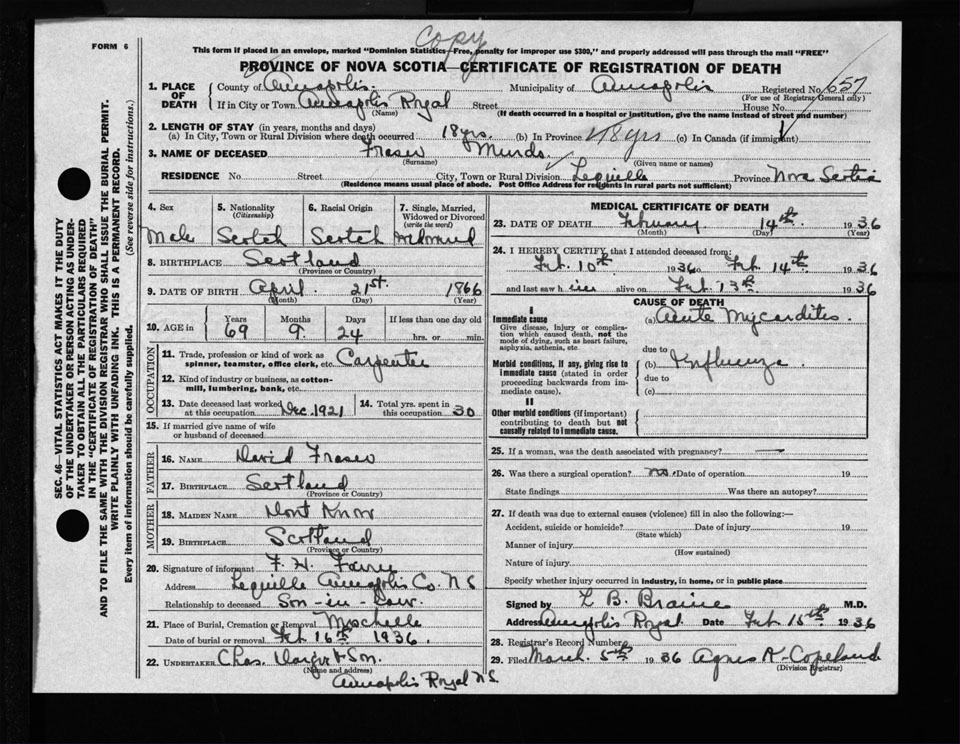 Copy
FORM 6
This form if placed in an envelope, marked "Dominion Statistics—Free, penalty for improper use $300," and properly addressed will pass through the mail "FREE"
PROVINCE OF NOVA SCOTIA—CERTIFICATE OF REGISTRATION OF DEATH
1. PLACE OF DEATH
County of Annapolis. Municipality of Annapolis Registered No. 657
(For use of Registrar General only)
If in City or Town Annapolis Royal Street House No.
(Name) (If death occurred in a hospital or institution, give the name instead of street and number)
2. LENGTH OF STAY (in years, months and days)
(a) In City, Town or Rural Division where death occurred 18yrs. (b) In Province 18yrs (c) In Canada (if immigrant)
3. NAME OF DECEASED Fraser Murdo
(Surname) (Given name or names)
RESIDENCE No. Street City, Town or Rural Division Lequille Province Nova Scotia
(Residence means usual place of abode. Post Office Address for residents in rural parts not sufficient)
4. Sex
Male
5. Nationality
(Citizenship)
Scotch
6. Racial Origin
Scotch
7. Single, Married, Widowed or Divorced
(write the word)
Widowed
8. BIRTHPLACE Scotland
(Province or Country)
9. DATE OF BIRTH April 21st. 1866
(Month) (Day) (Year)
10. AGE in Years Months Days If less than one day old
69 9 24 hrs. or min.
OCCUPATION
11. Trade, profession or kind of work as spinner, teamster, office clerk, etc. Carpenter
12. Kind of industry or business, as cotton-mill, lumbering, bank, etc.
13. Date deceased last worked at this occupation Dec. 1921
14. Total yrs. spent in this occupation 30
15. If married give name of wife or husband of deceased
FATHER
16. NAME David Fraser
17. BIRTHPLACE Scotland
(Province or Country)
MOTHER
18. MAIDEN NAME Dont Know
19. BIRTHPLACE Scotland
(Province or Country)
20. Signature of informant F. H.
Address Lequille Annapolis Co. N S
Relationship to deceased Son-in-law.
21. Place of Burial, Cremation or Removal Moschelle
Date of burial or removal Feb 16th 1936.
22. UNDERTAKER Chas. & Son.
(Name and address)
Annapolis Royal N S.
MEDICAL CERTIFICATE OF DEATH
23. DATE OF DEATH February 14th 1936
(Month) (Day) (Year)
24. I HEREBY CERTIFY, that I attended deceased from:
Feb. 10th 1936 to Feb. 14th 1936
and last saw him alive on Feb 13th 1936
CAUSE OF DEATH
I
Immediate cause
Give disease, injury or complication which caused death, not the mode of dying, such as heart failure, asphyxia, asthenia, etc.
(a) Acute Myocarditis.
due to
Morbid conditions, if any, giving rise to immediate cause (stated in order proceeding backwards from immediate cause).
(b) Influenza.
due to
(c)
II
Other morbid conditions (if important) contributing to death but not causally related to immediate cause.
25. If a woman, was the death associated with pregnancy? —
26. Was there a surgical operation? no. Date of operation 19
State findings Was there an autopsy?
27. If death was due to external causes (violence) fill in also the following:—
Accident, suicide or homicide? Date of injury 19
(State which)
Manner of injury
(How sustained)
Nature of injury
Specify whether injury occurred in industry, in home, or in public place
Signed by L B. Braine M.D.
Address Annapolis Royal Date Feb. 15th 1936
28. Registrar's Record Number
29. Filed March 5th 1936 Agnes K. Copeland
(Division Registrar)
SEC. 46—VITAL STATISTICS ACT MAKES IT THE DUTY
OF THE UNDERTAKER OR PERSON ACTING AS UNDERTAKER TO OBTAIN ALL THE PARTICULARS REQUIRED
IN THE "CERTIFICATE OF REGISTRATION OF DEATH"
AND TO FILE THE SAME WITH THE DIVISION REGISTRAR WHO SHALL ISSUE THE BURIAL PERMIT.
WRITE PLAINLY WITH UNFADING INK. THIS IS A PERMANENT RECORD.
Every item of information should be carefully supplied. (See reverse side for instructions.)